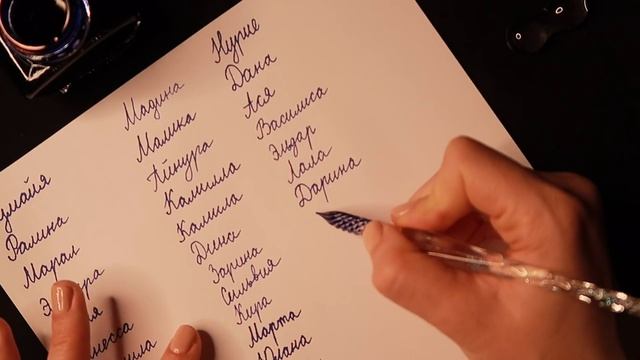 Ралина
Марал
Мадина
Малика
Айнура
Камилла
Камила
Дина
Зарина
Сильвия
Кира
Марта
Нурие
Дана
Ася
Василиса
Эльдар
Лала
Дарина